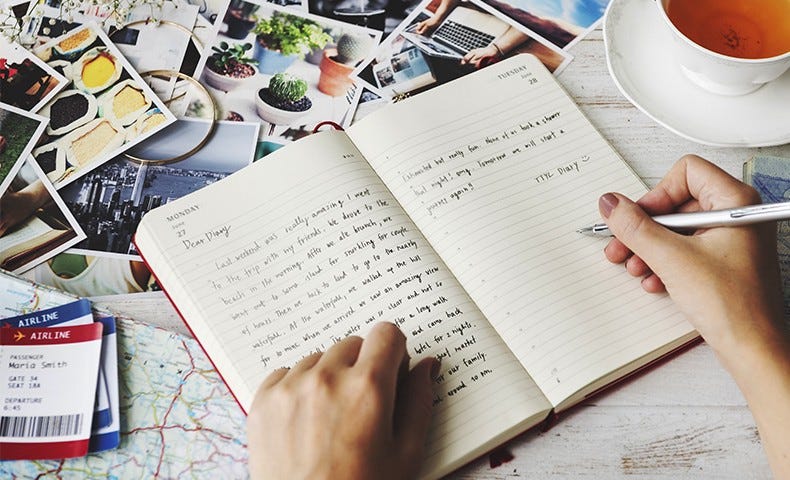 MONDAY
June
27
Dear Diary
Last weekend was really amazing I went
to the trip with my friends. We drove to the
beach in the morning. After we ate brunch, we
went out to some island for snorkling for couple
of hours. Then we back to land to go to the nearby
waterfall. At the waterfall, we walked up the hill
and when we arrived we saw an amazing view
of the waterfall. The water was so clear and not so
after a long walk
and came back
hotel for 2 nights.
for our family.
around 10 am.
TUESDAY
June
28
Exhausted but really fun. None of us took a shower
that night! Tomorrow we will start a
journey again!!
TTYL Diary
AIRLINE
AIRLINE
PASSENGER
Maria Smith
GATE 34
SEAT 18A
DEPARTURE
6:45